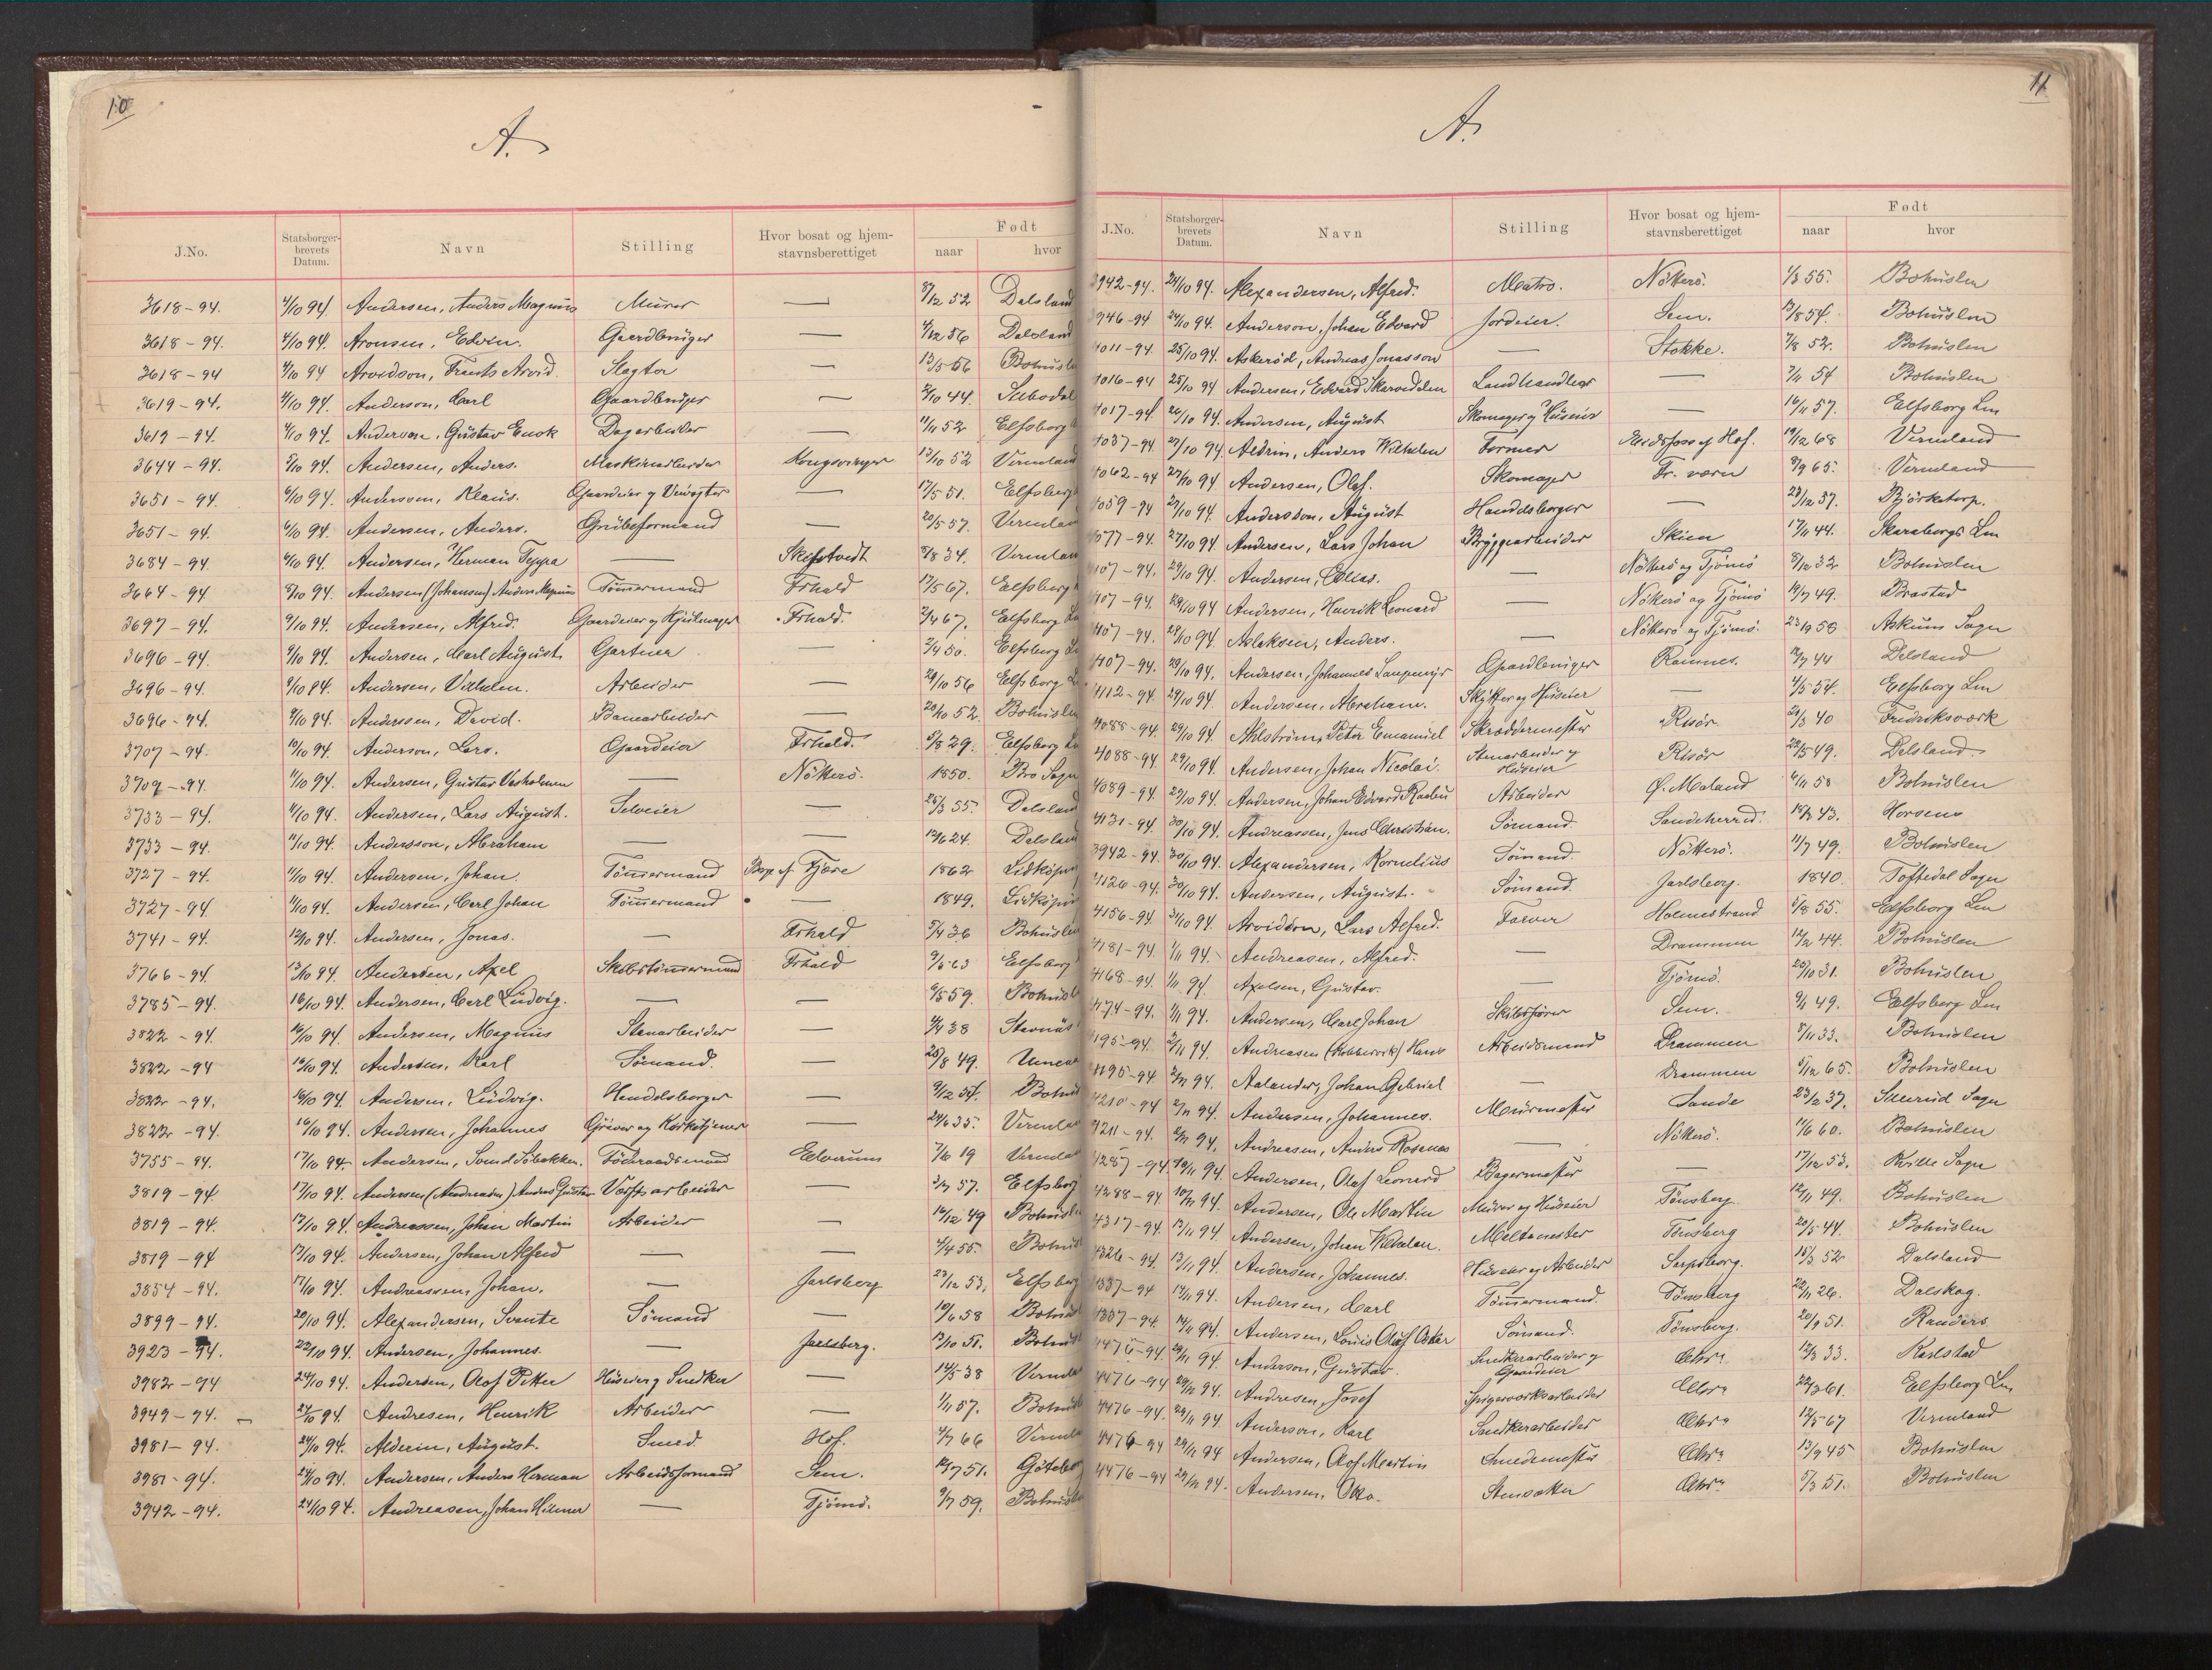 10
A.
J.No. Statsborger-brevets Datum. Navn Stilling Hvor bosat og hjem-stavnsberettiget Født naar hvor
3618-94. 4/10 94. Andersen, Anders Magnus Murer — 8/12 52 Dalsland
3618-94. 4/10 94. Aronsen, Edvin. Gaardbruger — 4/12 56 Dalsland
3618-94 4/10 94 Arvidson, Frants Arvid. Slagter — 13/5 66
3619-94. 4/10 94. Anderson, Carl Gaardbruger — 2/10 44.
3619-94. 4/10 94. Anderson, Gustav Enok Dagarbeider — 11/11 52 Elfsborg
3644-94. 5/10 94. Andersen, Anders. Maskinarbeider Kongsvinger 13/10 52 Vermland
3651-94. 6/10 94. Anderson, Klaus. Gaardeier og — 17/5 51. Elfsborg
3651-94. 6/10 94. Andersen, Anders. Grubeformand — 20/5 57.
3684-94. 6/10 94. Andersen, Herman Teppa — Skiptvedt 8/8 34.
3664-94 8/10 94. Andersen (Johansen) Anders Magnus Tømmermand Frhald 17/5 67. Elfsborg
3697-94. 9/10 94. Andersen, Alfred. Gaardeier og Hjulmager Frhald. 2/4 67. Elfsborg
3696-94. 9/10 94. Andersen, Carl August. Gartner — 2/4 50. Elfsborg
3696-94. 9/10 94. Andersen, Vilhelm. Arbeider — 29/10 56 Elfsborg
3696-94. 9/10 94. Anderssen, David. Banearbeider — 20/10 52.
3707-94. 10/10 94. Anderson, Lars. Gaardeier Frhald. 5/8 29. Elfsborg
3709-94. 11/10 94. Andersen, Gustav Vasholmen — Nøtterø. 1850. Bro Sogn
3733-94. 11/10 94. Andersen, Lars August. Selveier — 25/3 55. Dalsland
3733-94. 11/10 94. Andersson, Abraham — — 12/6 24. Dalsland
3727-94. 11/10 94. Andersen, Johan. Tømmermand Fjære 1862
3727-94. 11/10 94. Andersen, Carl Johan Tømmermand — 1849.
3741-94. 12/10 94. Andersen, Jonas. — Frhald 5/4 36
3766-94. 13/10 94. Andersen, Axel Skibstømmermand Frhald Elfsborg
3785-94. 16/10 94. Andersen, Carl Ludvig. — — 9/5 59.
3822-94. 16/10 94. Andersen, Magnus Stenarbeider — 4/4 38
3822-94 16/10 94. Andersen, Karl Sømand. — 25/8 49.
3822-94. 16/10 94. Andersen, Ludvig. Handelsborger — 9/12 34.
3822-94. 16/10 94. Andersen, Johannes Graver og Kirketjener — 24/6 35.
3755-94. 17/10 94. Andersen, Svend Søbakken. Føderaadsmand Elverum 7/6 19
3819-94. 17/10 94. Andersen (Andreasen) Anders Gustav Værftsarbeider — 3/7 57.
3819-94. 17/10 94. Andreassen, Johan Martin Arbeider — 16/12 49
3819-94 17/10 94. Andersen, Johan Alfred — — 4/4 55.
3854-94. 17/10 94. Andreassen, Johan. — Jarlsberg 23/12 53.
3899-94. 20/10 94. Alexandersen, Svante Sømand — 10/6 58
3923-94. 22/10 94. Andersen, Johannes. — Jarlsberg. 13/10 51.
3982-94 24/10 94. Andersen, Olof Petter Huseier og Snedker — 14/5 38
3949-94. 24/10 94. Andresen, Henrik Arbeider — 1/11 57.
3981-94. 24/10 94. Alderin, August. Smed. Hof. 4/7 66
3981-94. 24/10 94. Andersen, Anders Herman Arbeidsformand Sem. 12/7 51. Göteborg
3942-94. 24/10 94. Andreasen, Johan Hilmer — Tjømø. 9/7 59.
11
A.
J.No. Statsborger-brevets Datum. Navn Stilling Hvor bosat og hjem-stavnsberettiget Født naar hvor
3942-94. 24/10 94. Alexandersen, Alfred. Matros. Nøtterø. 1/3 55. Bohuslen
3946-94 24/10 94. Anderson, Johan Edvard Jordeier. Sem. 13/8 54. Bohuslen
4011-94 25/10 94. Askerød, Andreas Jonasson — Stokke. 7/8 52. Bohuslen
4016-94 25/10 94 Andersen, Edvard Landhandler — 7/11 54 Bohuslen
4017-94 26/10 94. Andersen, August Skomager og Huseier — 16/11 57. Elfsborg Len
4037-94 27/10 94. Aldrin, Anders Wilhelm Former Eidsfoss af Hof. 19/12 68 Vermland
4062-94 27/10 94 Andersen, Olof. Skomager Fr.værn 8/9 65. Vermland
4059-94 27/10 94. Andersson, August Handelsborger — 28/12 37. Björketorp.
4077-94. 27/10 94. Andersen, Lars Johan Bryggearbeider Skien 17/11 44. Skaraborgs Len
4107-94. 29/10 94. Andersen, Elias. — Nøtterø og Tjømø 8/12 32 Bohuslen
4107-94. 29/10 94 Andersen, Henrik Leonard — Nøtterø og Tjømø 19/7 49. Brastad
4107-94. 29/10 94. Aslaksen, Anders. — Nøtterø og Tjømø. Askums Sogn
4107-94. 29/10 94. Andersen, Johannes Gaardbruger Ramnes. 12/7 44 Dalsland
4112-94 29/10 94. Andersen, Abraham. Skytter og Huseier — 4/5 54. Elfsborg Len
4088-94. 29/10 94. Ahlstrøm, Peter Emanuel Skræddermester Risør 24/3 40 Fredriksværk
4088-94. 29/10 94. Andersen, Johan Nicolai. Stenarbeider og Huseier Risør 22/5 49. Dalsland
4089-94. 29/10 94. Andersen, Johan Edvard Arbeider Ø. Moland 6/11 58 Bohuslen
4131-94. 30/10 94. Andreassen, Jens Christian. Sømand. Sandeherred. 43. Horsens
3942-94. 30/10 94. Alexandersen, Kornelius Sømand. Nøtterø. 11/7 49. Bohuslen
4126-94. 30/10 94. Andersen, August. Sømand. Jarlsberg. 1840. Toftedal Sogn
4156-94. 31/10 94. Arvidson, Lars Alfred. Farver Holmestrand 5/8 55. Elfsborg Len
4181-94. 1/11 94. Andreasen, Alfred. — Drammen 12/2 44. Bohuslen
4168-94. 1/11 94. Axelsen, Gustav. — Tjømø. 25/10 31. Bohuslen
4174-94. 1/11 94. Andersen, Carl Johan Skibsfører Sem. 9/11 49. Elfsborg Len
4195-94. 2/11 94. Andreasen (Kobbervik) Hans Arbeidsmand Drammen 8/11 33. Bohuslen
4195-94. 2/11 94. Aalander, Johan Gabriel — Drammen 5/12 65. Bohuslen
4210-94 2/11 94. Andersen, Johannes. Murmester Sande 23/12 37. Sogn
4211-94. 2/11 94. Andreasen, Anders Rosenes — Nøtterø. 11/6 60. Bohuslen
4287-94 10/11 94. Andersen, Olaf Leonard Bagermester — 17/12 53. Kville Sogn
4288-94 10/11 94. Andersen, Ole Martin Murer og Huseier Tønsberg. 12/11 49. Bohuslen
4317-94. 13/11 94. Andersen, Johan Wilhelm. Meltemester Tønsberg 20/5 44. Bohuslen
4326-94. 13/11 94. Andersen, Johannes. Huseier og Arbeider Sarpsborg. 15/3 52 Dalsland
4337-94 14/11 94. Andersen, Carl Tømmermand. Tønsberg 22/11 26. Dalskog.
4337-94. 14/11 94. Andersen, Louis Oluf Oskar Sømand. Tønsberg. 20/9 51. Randers
4476-94. 29/11 94. Anderson, Gustav Snedkerarbeider og Gaardeier Chra 12/3 33. Karlstad
4476-94 29/11 94. Andresen, Josef Spigerværksarbeider Chra 22/3 61. Elfsborg Len
4476-94. 29/11 94. Anderson, Karl Snedkerarbeider Chra 12/5 67 Vermland
4476-94 29/11 94 Andersen, Olof Martin Smedemester Chra 13/9 45 Bohuslen
4476-94 29/11 94. Andersen, Otto. Chra 5/3 51. Bohuslen